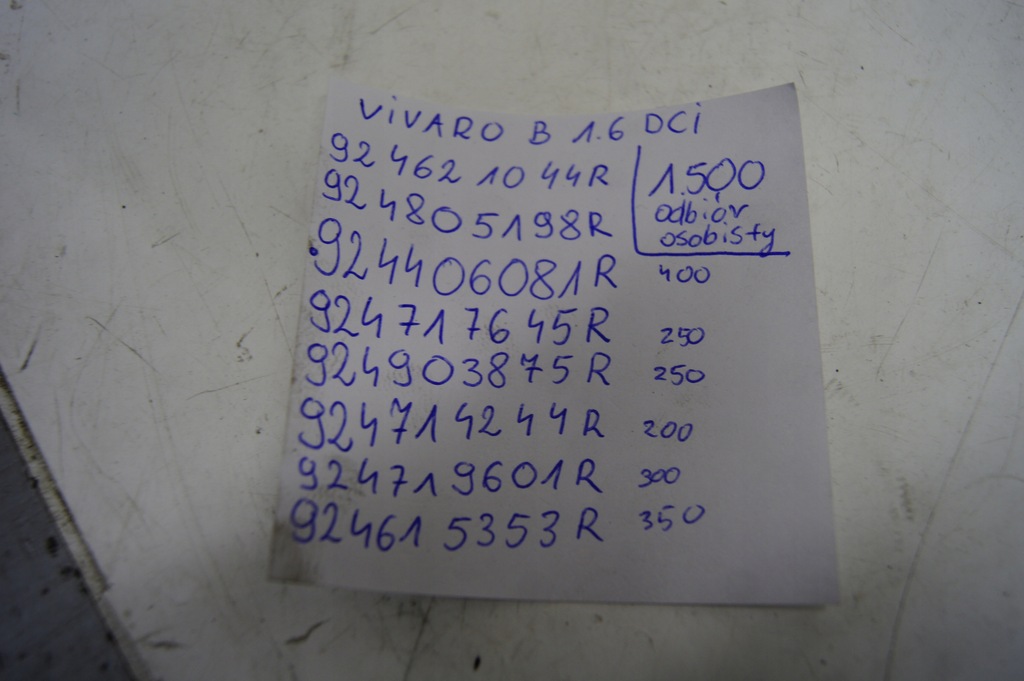 ViVARO B 1.6 DCi
924621044R
924805198R
1.500
odbiór
osobisty
924406081R 400
924717645R 250
924903875R 250
924714244R 200
924719601R 300
924615353R 350